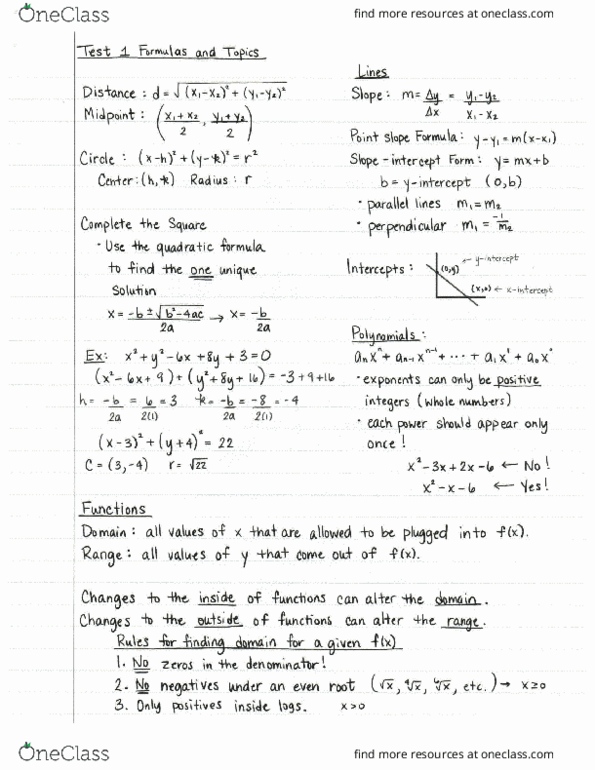 OneClass
find more resources at oneclass.com
Test 1 Formulas and Topics
Distance : d = √(x₁-x₂)² + (y₁-y₂)²
Midpoint : (x₁+x₂/2 , y₁+y₂/2)
Circle : (x-h)² + (y-k)² = r²
Center: (h, k) Radius : r
Complete the Square
· Use the quadratic formula
to find the one unique
solution
x = -b ± √b²-4ac / 2a → x = -b / 2a
Ex: x² + y² - 6x + 8y + 3 = 0
(x² - 6x + 9) + (y² + 8y + 16) = -3 + 9 + 16
h = -b/2a = 6/2(1) = 3 k = -b/2a = -8/2(1) = -4
(x-3)² + (y+4)² = 22
C = (3, -4) r = √22
Lines
Slope : m = Δy/Δx = y₁-y₂/x₁-x₂
Point slope Formula : y-y₁ = m(x-x₁)
Slope-intercept Form : y = mx + b
b = y-intercept (0, b)
· parallel lines m₁ = m₂
· perpendicular m₁ = -1/m₂
Intercepts :
(0,y) ← y-intercept
(x,0) ← x-intercept
Polynomials :
aₙxⁿ + aₙ₋₁xⁿ⁻¹ + ··· + a₁x¹ + a₀x⁰
· exponents can only be positive
integers (whole numbers)
· each power should appear only
once !
x² - 3x + 2x - 6 ← No !
x² - x - 6 ← Yes !
Functions
Domain : all values of x that are allowed to be plugged into f(x).
Range : all values of y that come out of f(x).
Changes to the inside of functions can alter the domain.
Changes to the outside of functions can alter the range.
Rules for finding domain for a given f(x)
1. No zeros in the denominator !
2. No negatives under an even root (√x, ⁴√x, ⁶√x, etc.) → x ≥ 0
3. Only positives inside logs. x > 0
OneClass
find more resources at oneclass.com